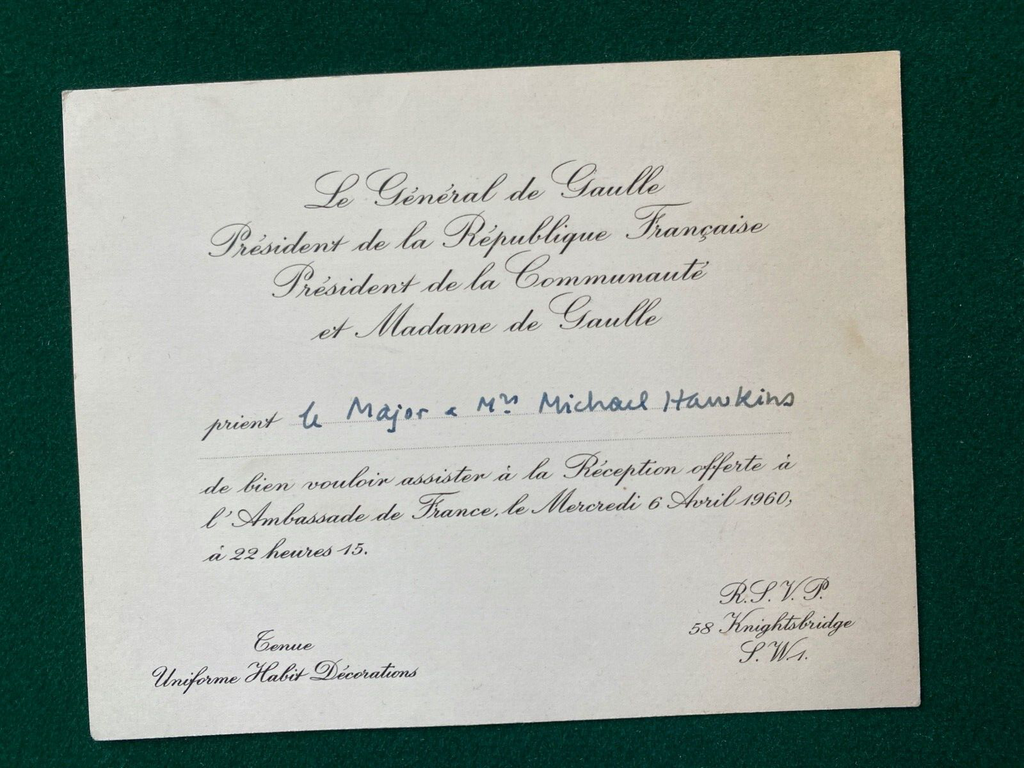 Le Général de Gaulle
Président de la République Française
Président de la Communauté
et Madame de Gaulle
prient le Major & Mrs Michael Hawkins
de bien vouloir assister à la Réception offerte à
l'Ambassade de France, le Mercredi 6 Avril 1960,
à 22 heures 15.
R.S.V.P.
58 Knightsbridge
S.W.1.
Tenue
Uniforme Habit Décorations